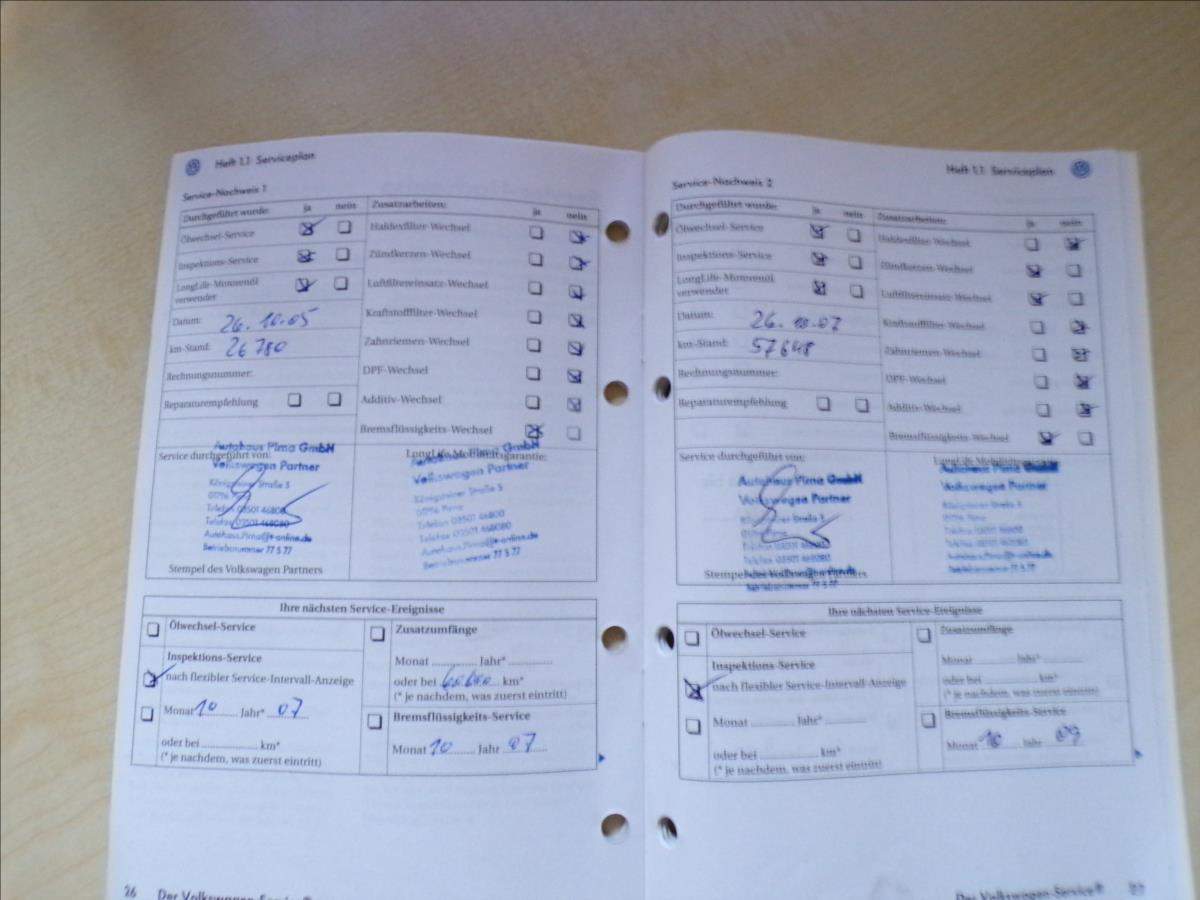 Heft 1.1 Serviceplan
Service-Nachweis 1
Durchgeführt wurde: ja nein
Ölwechsel-Service
Inspektions-Service
LongLife-Motorenöl
verwendet
Datum: 26.10.05
km-Stand: 26780
Rechnungsnummer:
Reparaturempfehlung
Zusatzarbeiten: ja nein
Haldexfilter-Wechsel
Zündkerzen-Wechsel
Luftfiltereinsatz-Wechsel
Kraftstofffilter-Wechsel
Zahnriemen-Wechsel
DPF-Wechsel
Additiv-Wechsel
Bremsflüssigkeits-Wechsel
Service durchgeführt von:
Autohaus Pirna GmbH
Volkswagen Partner
Königsteiner Straße 5
01796 Pirna
Telefon 03501 46800
Telefax 03501 468080
Autohaus.Pirna@t-online.de
Betriebsnummer 77 5 77
Stempel des Volkswagen Partners
LongLife Mobilitätsgarantie:
Autohaus Pirna GmbH
Volkswagen Partner
Königsteiner Straße 5
01796 Pirna
Telefon 03501 46800
Telefax 03501 468080
Autohaus.Pirna@t-online.de
Betriebsnummer 77 5 77
Ihre nächsten Service-Ereignisse
Ölwechsel-Service
Inspektions-Service
nach flexibler Service-Intervall-Anzeige
Monat 10 Jahr* 07
oder bei ............ km*
(* je nachdem, was zuerst eintritt)
Zusatzumfänge
Monat ............ Jahr* ............
oder bei 60000 km*
(* je nachdem, was zuerst eintritt)
Bremsflüssigkeits-Service
Monat 10 Jahr 07
26 Der Volkswagen-Service®
Heft 1.1 Serviceplan
Service-Nachweis 2
Durchgeführt wurde: ja nein
Ölwechsel-Service
Inspektions-Service
LongLife-Motorenöl
verwendet
Datum: 26.10.07
km-Stand: 57648
Rechnungsnummer:
Reparaturempfehlung
Zusatzarbeiten: ja nein
Haldexfilter-Wechsel
Zündkerzen-Wechsel
Luftfiltereinsatz-Wechsel
Kraftstofffilter-Wechsel
Zahnriemen-Wechsel
DPF-Wechsel
Additiv-Wechsel
Bremsflüssigkeits-Wechsel
Service durchgeführt von:
Autohaus Pirna GmbH
Volkswagen Partner
Königsteiner Straße 5
01796 Pirna
Telefon 03501 46800
Telefax 03501 468080
Autohaus.Pirna@t-online.de
Betriebsnummer 77 5 77
Stempel des Volkswagen Partners
Autohaus Pirna GmbH
Volkswagen Partner
Königsteiner Straße 5
01796 Pirna
Telefon 03501 46800
Telefax 03501 468080
Autohaus.Pirna@t-online.de
Betriebsnummer 77 5 77
Ihre nächsten Service-Ereignisse
Ölwechsel-Service
Inspektions-Service
nach flexibler Service-Intervall-Anzeige
Monat ............ Jahr* ............
oder bei ............ km*
(* je nachdem, was zuerst eintritt)
Zusatzumfänge
Monat ............ Jahr* ............
oder bei ............ km*
(* je nachdem, was zuerst eintritt)
Bremsflüssigkeits-Service
Monat 10 Jahr 09
Der Volkswagen-Service®